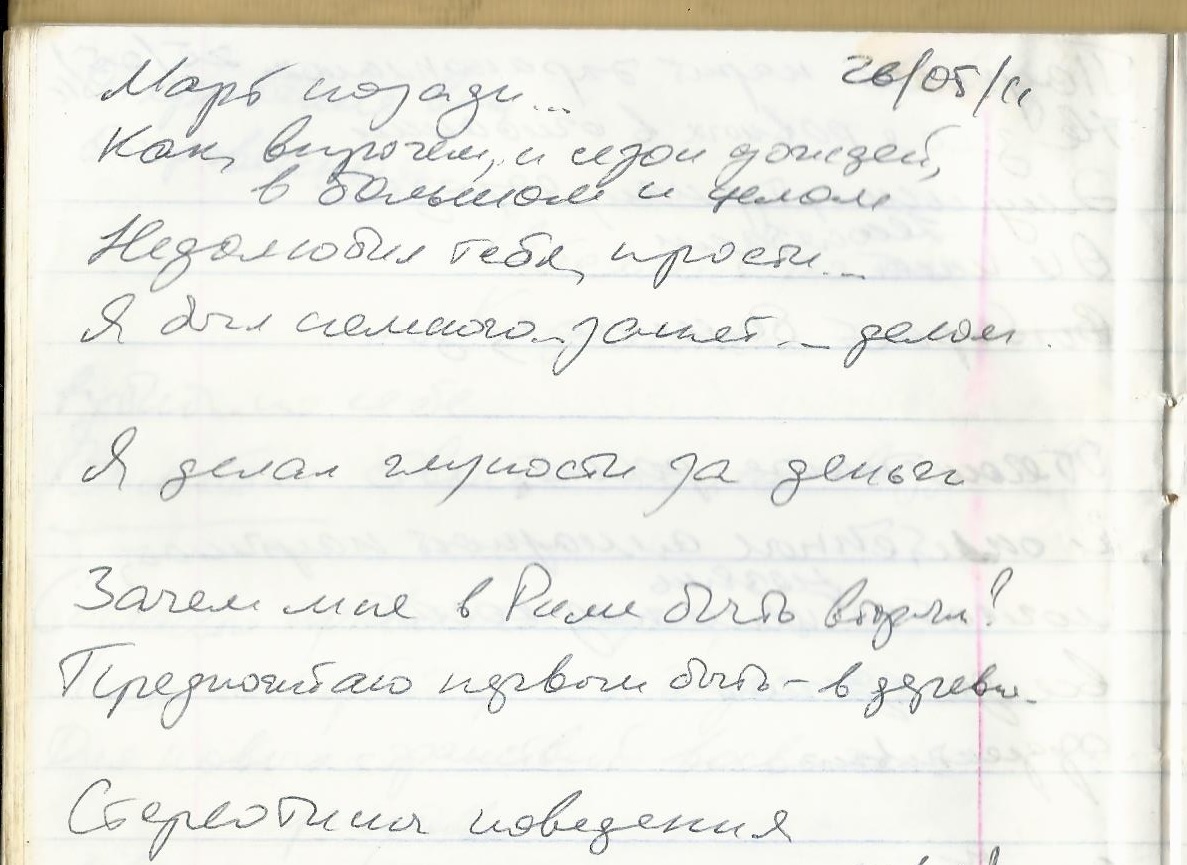 26/05/11
Март позади...
Как, впрочем, и сезон дождей,
в большом и целом
Недолюбил тебя, прости...
Я был немного... занят... делом.
Я делал глупости за деньги
Зачем мне в Риме быть вторым?
Предпочитаю первым быть - в деревне
Стереотипы поведения